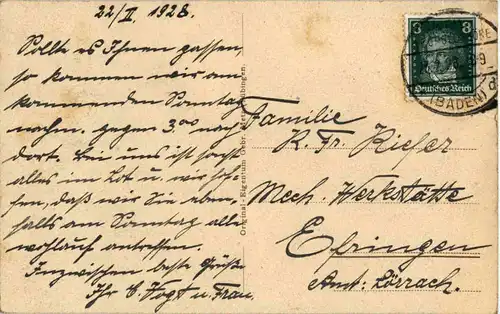 22/II. 1928.
Sollte es Ihnen passen,
so kommen wir am
kommenden Sonntag
nachm. gegen 3.00 nach
dort. Bei uns ist sonst
alles im Lot u. wir hof-
fen, daß wir Sie eben-
falls am Sonntag alle
wohlauf antreffen.
Inzwischen beste Grüße
Ihr E. Vogt u. Frau.
Original-Eigentum Gebr. Metz, Tübingen.
8 8
Deutsches Reich
(BADEN)
Familie
K. Fr. Kiefer
Mech. Werkstätte
Efringen
Amt: Lörrach.